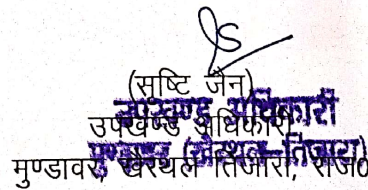 (सृष्टि जैन)
उपखण्ड अधिकारी
उपखण्ड अधिकारी
मुण्डावर (खैरथल-तिजारा)
मुण्डावर, खैरथल तिजारा, राज०